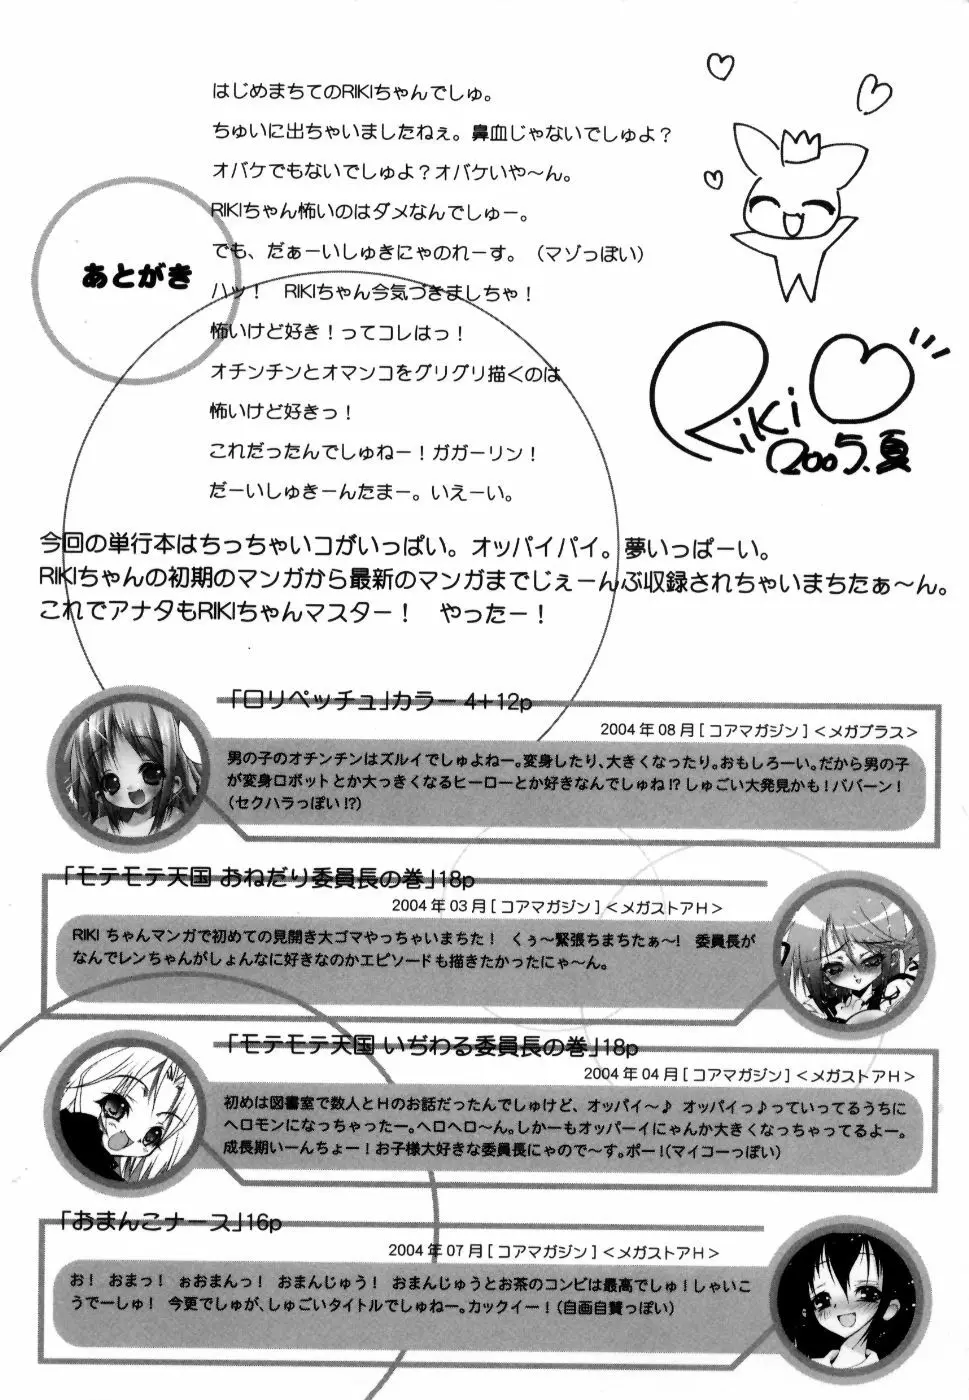 はじめまちてのRIKIちゃんでしゅ。
ちゅいに出ちゃいましたねぇ。鼻血じゃないでしゅよ？
オバケでもないでしゅよ？オバケいや〜ん。
RIKIちゃん怖いのはダメなんでしゅー。
でも、だぁーいしゅきにゃのれーす。（マゾっぽい）
ハッ！　RIKIちゃん今気づきましちゃ！
怖いけど好き！ってコレはっ！
オチンチンとオマンコをグリグリ描くのは
怖いけど好きっ！
これだったんでしゅねー！ガガーリン！
だーいしゅきーんたまー。いえーい。
あとがき
RiKi
2005.夏
今回の単行本はちっちゃいコがいっぱい。オッパイパイ。夢いっぱーい。
RIKIちゃんの初期のマンガから最新のマンガまでじぇーんぶ収録されちゃいまちたぁ〜ん。
これでアナタもRIKIちゃんマスター！　やったー！
「ロリペッチュ」カラー 4+12p
2004年08月[コアマガジン]＜メガプラス＞
男の子のオチンチンはズルイでしゅよねー。変身したり、大きくなったり。おもしろーい。だから男の子
が変身ロボットとか大っきくなるヒーローとか好きなんでしゅね!?しゅごい大発見かも！ババーン！
（セクハラっぽい!?）
「モテモテ天国 おねだり委員長の巻」18p
2004年03月[コアマガジン]＜メガストアH＞
RIKIちゃんマンガで初めての見開き大ゴマやっちゃいまちた！　くぅ〜緊張ちまちたぁ〜！　委員長が
なんでレンちゃんがしょんなに好きなのかエピソードも描きたかったにゃ〜ん。
「モテモテ天国 いぢわる委員長の巻」18p
2004年04月[コアマガジン]＜メガストアH＞
初めは図書室で数人とHのお話だったんでしゅけど、オッパイ〜♪ オッパイっ♪っていってるうちに
ヘロモンになっちゃったー。ヘロヘロ〜ん。しかーもオッパーイにゃんか大きくなっちゃってるよー。
成長期いーんちょー！お子様大好きな委員長にゃので〜す。ポー！（マイコーっぽい）
「おまんこナース」16p
2004年07月[コアマガジン]＜メガストアH＞
お！　おまっ！　ぉおまんっ！　おまんじゅう！　おまんじゅうとお茶のコンビは最高でしゅ！しゃいこ
うでーしゅ！　今更でしゅが、しゅごいタイトルでしゅねー。カックイー！（自画自賛っぽい）